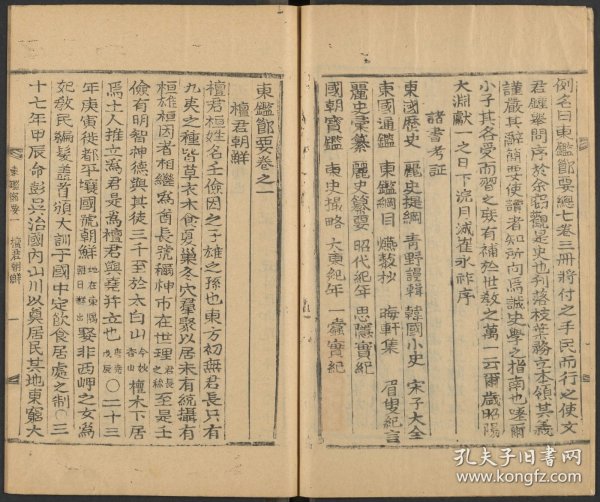 例名曰東鑑節要總七卷三冊將付之手民而行之使文
君 問序於余窃觀是史也刋落枝葉務立本領其義
謹嚴其辭簡要使讀者知所向爲誠史學之指南也嗟爾
小子其各受而習之庶有補於世敎之萬一云爾歲昭陽
大淵獻一之日下浣月滅崔永祚序
諸書考証
東國歷史 麗史提綱 青野謾輯 韓國小史 宋子大全
東國通鑑 東鑑綱目 燃藜 晦軒集 眉叟紀言
麗史彙纂 麗史纂要 昭代紀年 思隱實紀
國朝寶鑑 東史撮略 大東紀年 一蠹實紀
東鑑節要卷之一
檀君朝鮮
檀君桓姓名壬儉因之子雄之孫也東方初無君長只有
九夷之種皆草衣木食夏巢冬穴羣聚以居未有統攝有
桓雄桓因者相繼爲酋長號神市在世理君長之稱至是壬
儉有明智神德與其徒三千至於太白山今妙香山檀木下居
焉土人推立爲君是爲檀君與堯幷立也唐堯戊辰○二十三
年庚寅徙都平壤國號朝鮮地在東隅日出娶非西岬之女爲
妃敎民編髮盖首頒大訓于國中定飮食居處之制○三
十七年甲辰命彭吳治國內山川以奠居民其地東窮大
東鑑節要 一 檀君朝鮮 一
孔夫子旧书网
www.kongfz.com